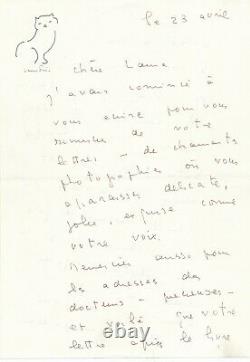 le 23 avril
Chère Laura
J'avais commencé à
vous écrire pour vous
remercier de votre
lettre - de charmantes
photographies où vous
apparaissez délicate,
jolie, exquise comme
votre voix.
Remercier aussi pour
les adresses des
docteurs - précieuses -
et voilà que votre
lettre après le livre